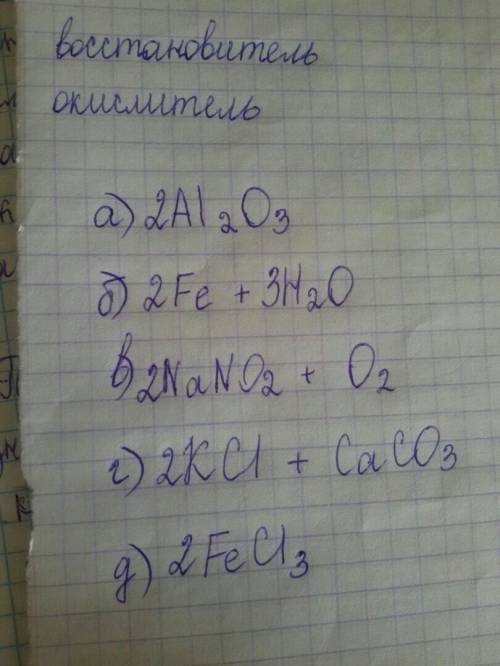 восстановитель
окислитель
а) 2Al₂O₃
б) 2Fe + 3H₂O
в) 2NaNO₂ + O₂
г) 2KCl + CaCO₃
д) 2FeCl₃